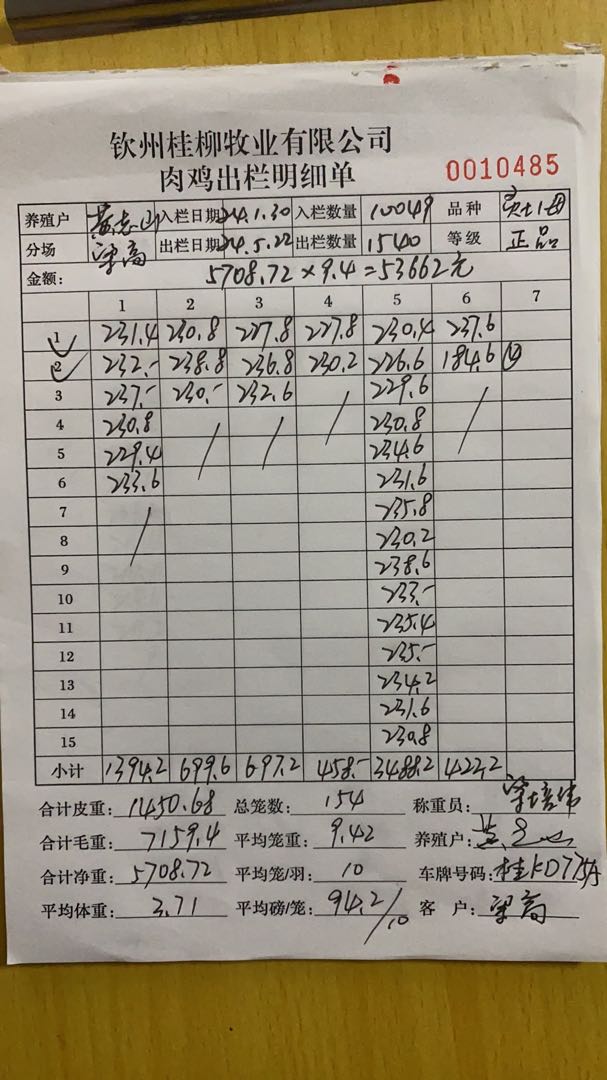 钦州桂柳牧业有限公司
肉鸡出栏明细单
0010485
养殖户 黄志山 入栏日期 24.1.30 入栏数量 10049 品种
分场 梁高 出栏日期 24.5.22 出栏数量 1540 等级 正品
金额: 5708.72×9.4=53662元
1 2 3 4 5 6 7
1 231.4 230.8 227.8 227.8 230.4 237.6
2 232.- 238.8 236.8 230.2 226.6 184.6 ④
3 237.- 230.- 232.6 / 229.6 /
4 230.8 / / 230.8
5 229.4 234.6
6 233.6 231.6
7 / 235.8
8 230.2
9 238.6
10 233.-
11 235.4
12 235.-
13 234.2
14 231.6
15 230.8
小计 1394.2 699.6 697.2 458.- 3488.2 422.2
合计皮重: 1450.68 总笼数: 154 称重员: 梁培伟
合计毛重: 7159.4 平均笼重: 9.42 养殖户:
合计净重: 5708.72 平均笼/羽: 10 车牌号码: 桂KD775A
平均体重: 3.71 平均磅/笼: 94.2/10 客 户: 梁高